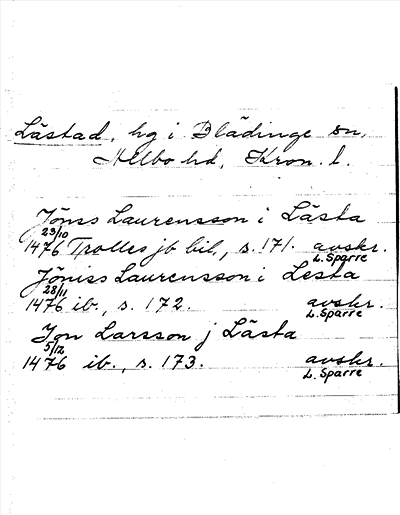 Lästad, hg i Blädinge sn,
Allbo hd, Kron. l.
Jöniss Laurensson i Lästa
23/10
1476 Trolles jb bil., s. 171. avskr.
L. Sparre
Jöniss Laurensson i Lesta
28/11
1476 ib., s. 172. avskr.
L. Sparre
Jon Larsson j Lästa
5/12
1476 ib., s. 173. avskr.
L. Sparre